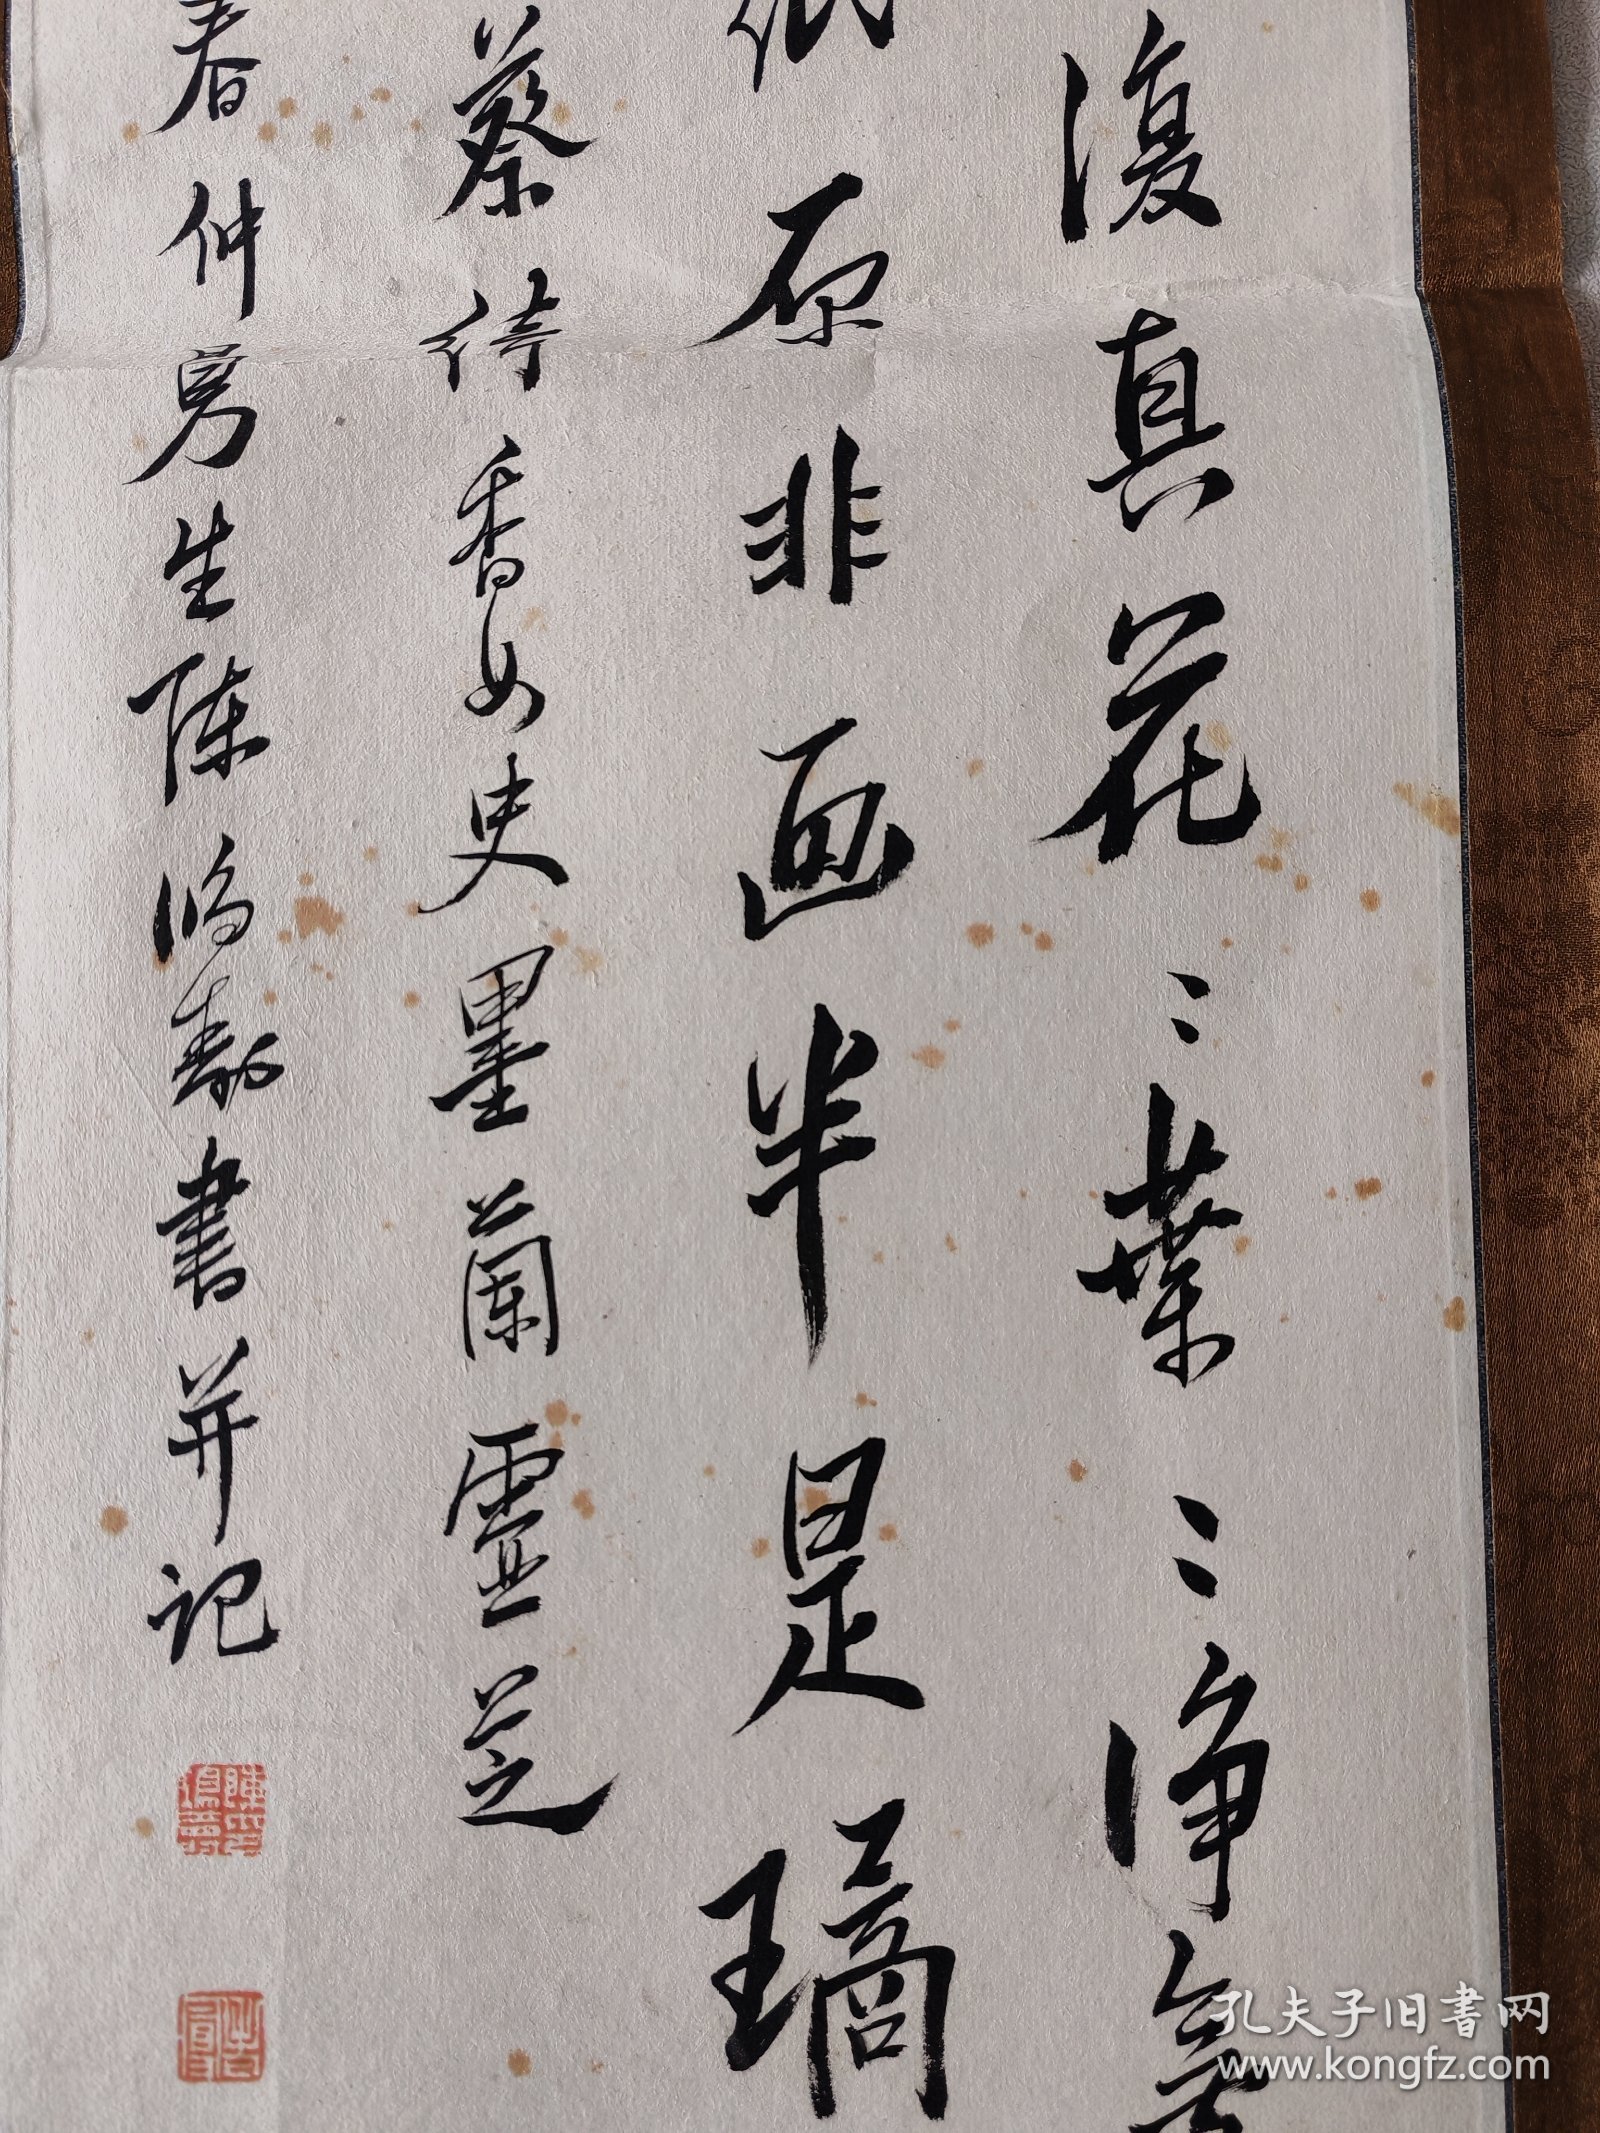 復真花〻葉〻净無
紙原非画半是璚
蔡绮香女史墨蘭靈芝
春仲勇生陈鴻壽書并记
孔夫子旧书网
www.kongfz.com